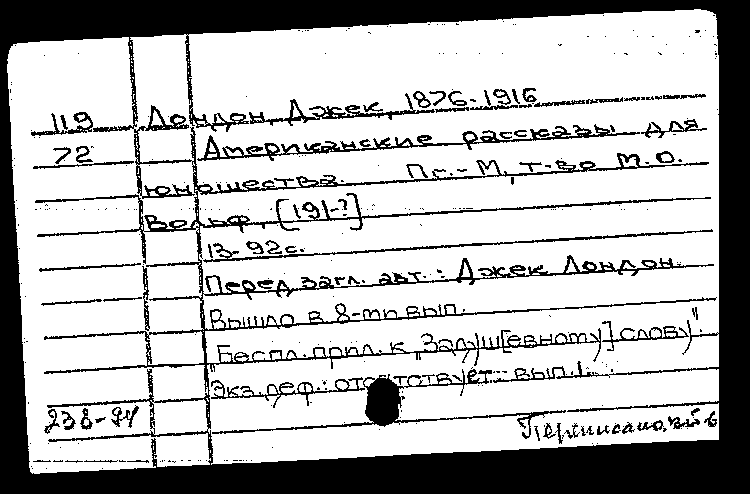 119 Лондон, Джек, 1876-1916
72 Американские рассказы для
юношества. Пг.-М, т-во М.О.
Вольф, [191-?]
13-92с.
Перед загл. авт.: Джек Лондон.
Вышло в 8-ми вып.
"Беспл. прил. к „Задуш[евному] слову".
Экз. деф.: отсутствует: вып.1.
238-94